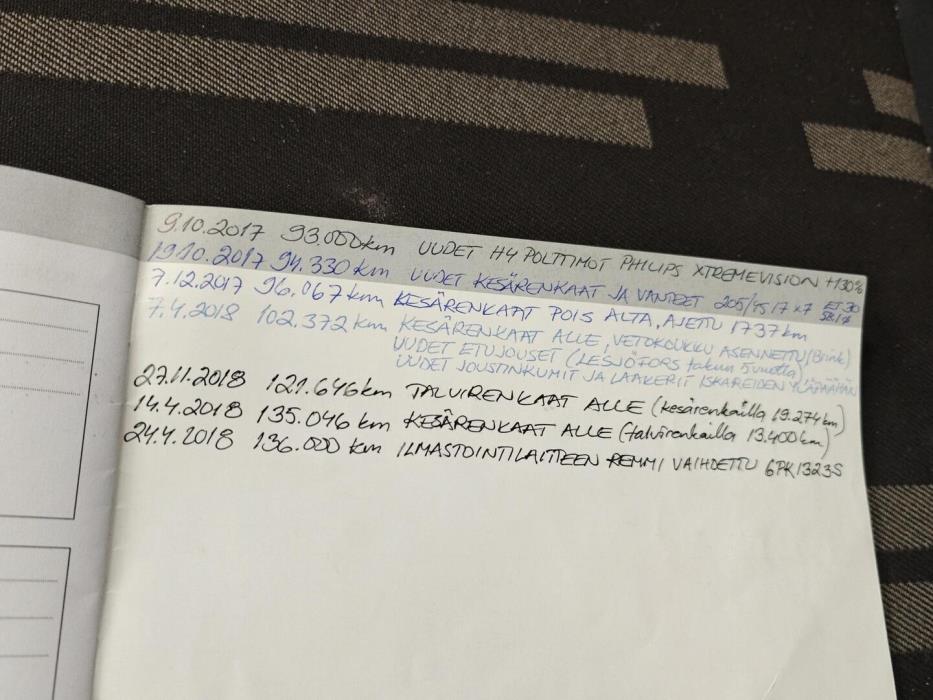 9.10.2017 93.000km UUDET H4 POLTTIMOT PHILIPS XTREMEVISION +130%
19.10.2017 94.330km UUDET KESÄRENKAAT JA VANTEET 205/45 17 x7 ET:30 58.1⌀
7.12.2017 96.067km KESÄRENKAAT POIS ALTA, AJETTU 1737km
7.4.2018 102.372km KESÄRENKAAT ALLE, VETOKOUKKU ASENNETTU (Brink)
UUDET ETUJOUSET (LESJÖFORS takuu 5vuotta)
UUDET JOUSTINKUMIT JA LAAKERIT ISKAREIDEN YLÄPÄÄHÄN
27.11.2018 121.646km TALVIRENKAAT ALLE (kesärenkailla 19.274km)
14.4.2018 135.046 km KESÄRENKAAT ALLE (talvirenkailla 13.400km)
24.4.2018 136.000 km ILMASTOINTILAITTEEN REMMI VAIHDETTU 6PK1323S